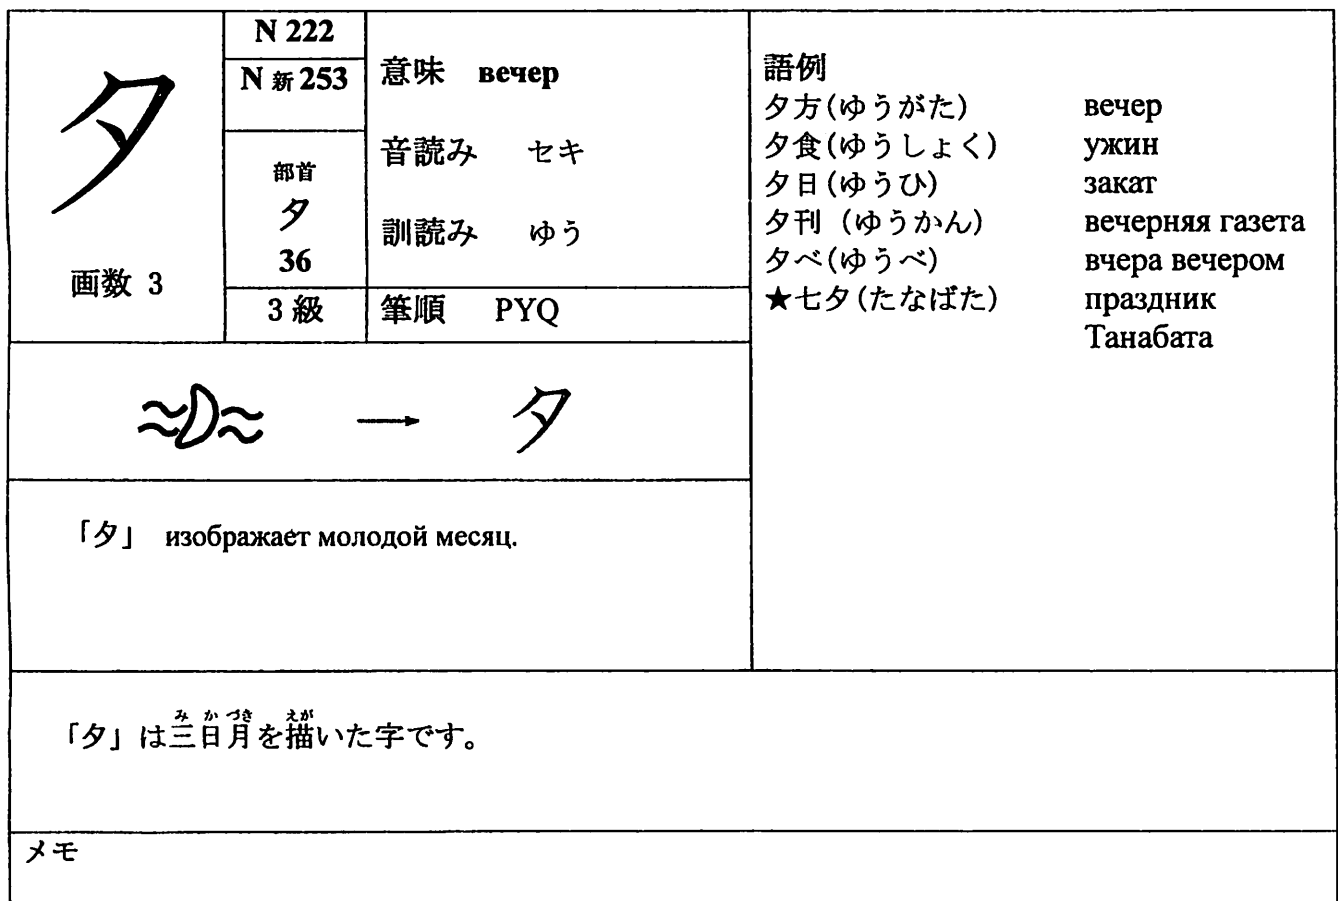 夕
画数 3
N 222
N 新 253
部首
夕
36
3 級
意味 вечер
音読み セキ
訓読み ゆう
筆順 PYQ
語例
夕方(ゆうがた) вечер
夕食(ゆうしょく) ужин
夕日(ゆうひ) закат
夕刊 (ゆうかん) вечерняя газета
夕べ(ゆうべ) вчера вечером
★七夕(たなばた) праздник
Танабата
夕
「夕」 изображает молодой месяц.
み か づき えが
「夕」は三日月を描いた字です。
メモ